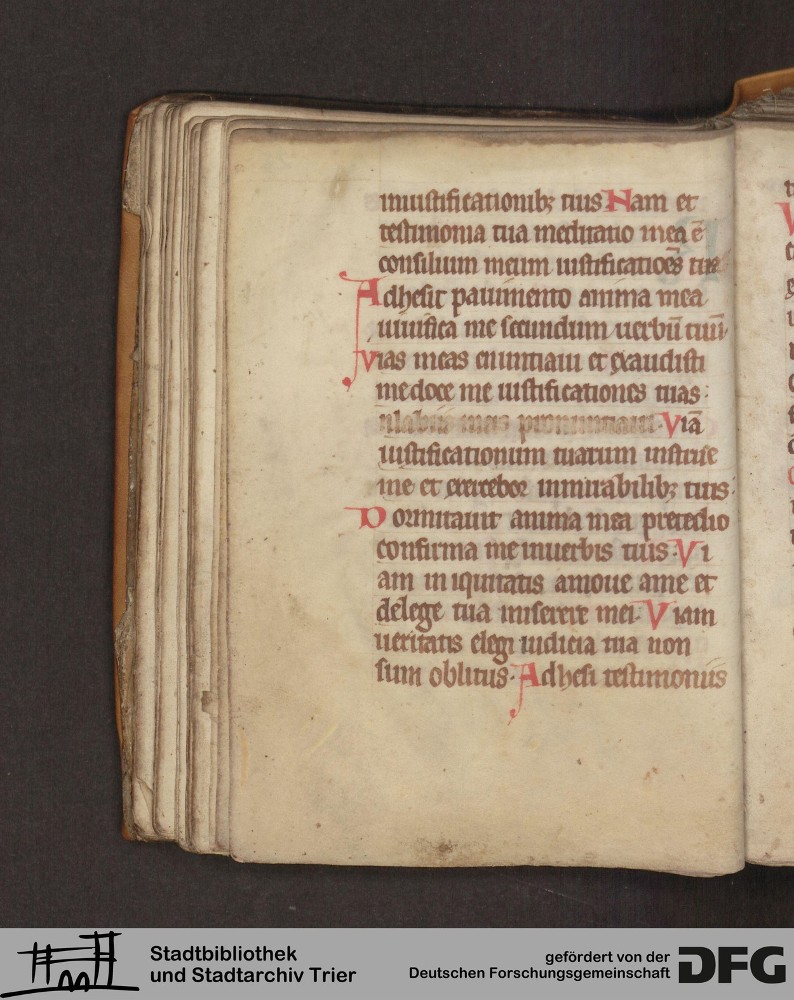 iniustificationib; tuis Nam et
testimonia tua meditatio mea ē
consilium meum iustificatōes tue
Adhesit pauimento anima mea
uiuifica me secundum uerbū tuū·
Vias meas enuntiaui et exaudisti
medoce me iustificationes tuas:
Viā
iustificationum tuarum instrue
me et exercebor inmirabilib; tuis·
Dormitauit anima mea pretedio
confirma me inuerbis tuis· Vi
am iniquitatis amoue ame et
delege tua miserere mei· Viam
ueritatis elegi iudicia tua non
sum oblitus· Adhesi testimoniis
Stadtbibliothek
und Stadtarchiv Trier
gefördert von der
Deutschen Forschungsgemeinschaft
DFG